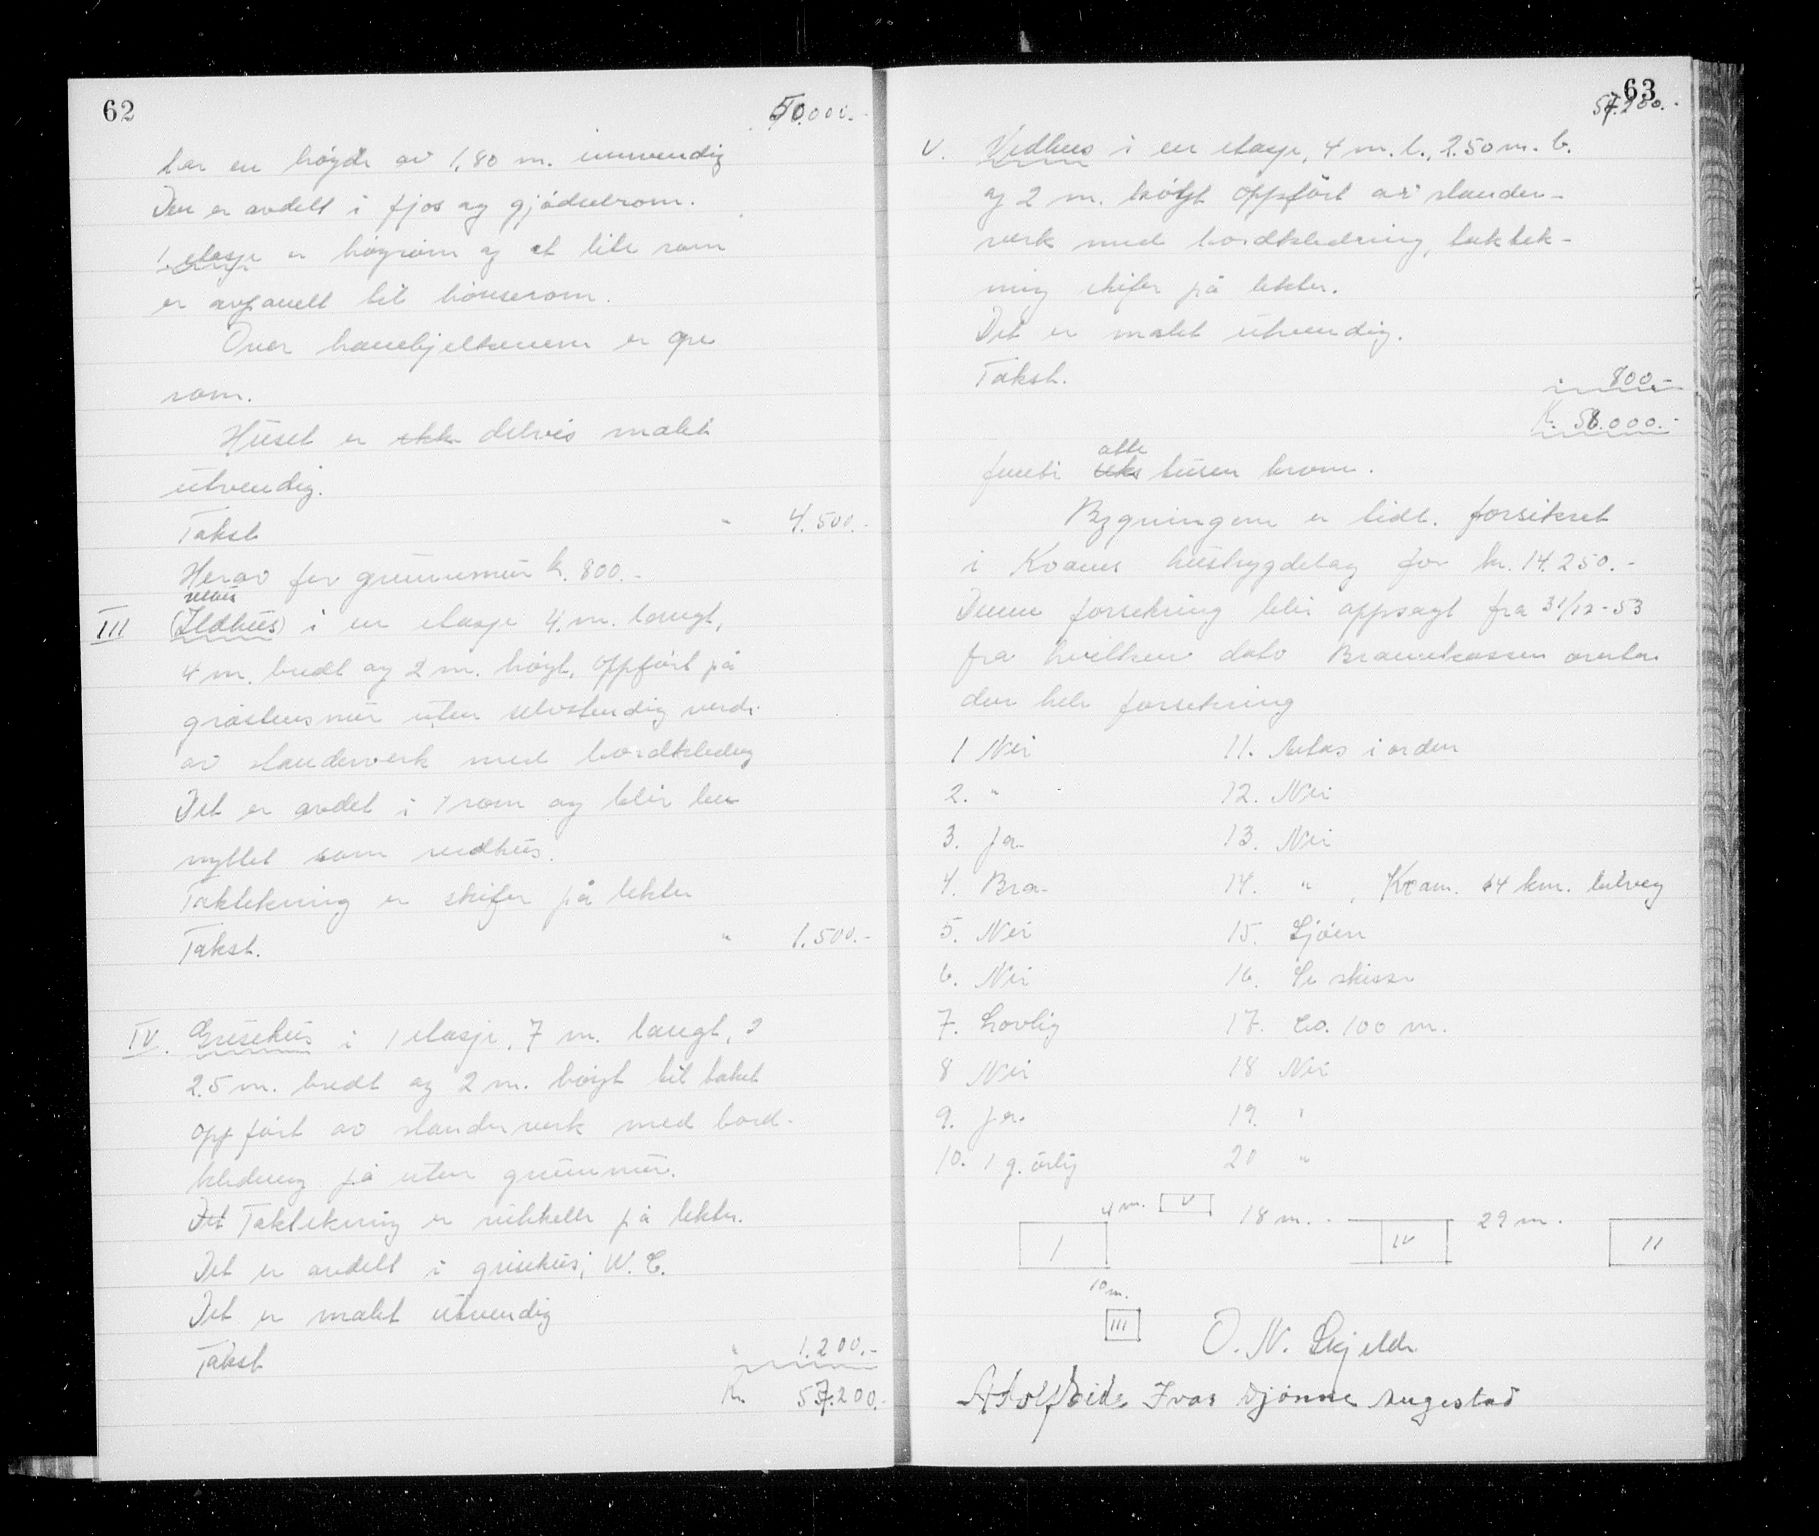 62
50.000.-
har en høyde av 1,80 m. innvendig
Den er avdelt i fjos og gjødselrom.
1. etasje er høyrom og et lite rom
er avpanelt til hønserom.
Over hanebjelkenem er ope
rom.
Huset er ikke delvis malet
utvendig.
Takst " 4.500.-
Herav for grunnmur k. 800.-
III (Ildhus) i en etasje 4. m. langt,
4 m. bredt og 2 m. høyt, oppført på
gråstensmur uten selvstendig verdi
av standerverk med bordkledng
Det er avdelt i 1 rom og blir be
nyttet som vedhus.
Taktekning er skifer på lekter
Takst. " 1.500.-
IV. Grisehus i 1 etasje, 7 m. langt, 2
2.5 m. bredt og 2 m. høyt til taket
oppført av standerverk med bord-
kledning på uten grunnmur.
Det Taktekning er ruteheller på lekter.
Det er avdelt i grisehus, W.C.
Det er malt utvendig
Takst " 1.200.-
Kr. 57.200.-
63
57.200.-
V. Vedhus i en etasje, 4 m. l., 2.50 m. b.
og 2 m. høyt oppført av stander-
verk med bordkledning, taktek-
ning skifer på lekter.
Det er malt utvendig.
Takst. " 800.-
K. 58.000.-
åtte
femti seks tusen kroner.
Bygningene er tidl. forsikret
i Kvams husbygdelag for kr. 14.250.-
Denne forsikring blir oppsagt fra 31/12-53
fra hvilken dato Brannkassen overtar
den hele forsikring
1 Nei 11. Antas i orden
2. " 12. Nei
3. Ja 13. Nei
4. Bra 14. " , Kvam. 14 km. bilveg
5. Nei 15. Sjøen
6. Nei 16. Se skisse
7. Lovlig 17. Ca. 100 m.
8 Nei 18 Nei
9. Ja. 19. "
10. 1 g. årlig 20 "
4 m. V 18 m. 29 m.
I IV II
10 m.
III
O. N. Skjelde
Adolf Eide Ivar Djønne Augestad